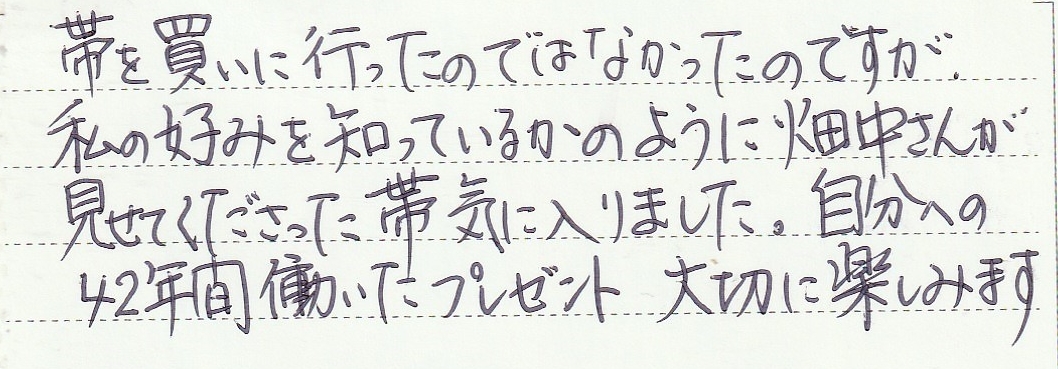 帯を買いに行ったのではなかったのですが、
私の好みを知っているかのように畑中さんが
見せてくださった帯気に入りました。自分への
42年間働いたプレゼント 大切に楽しみます